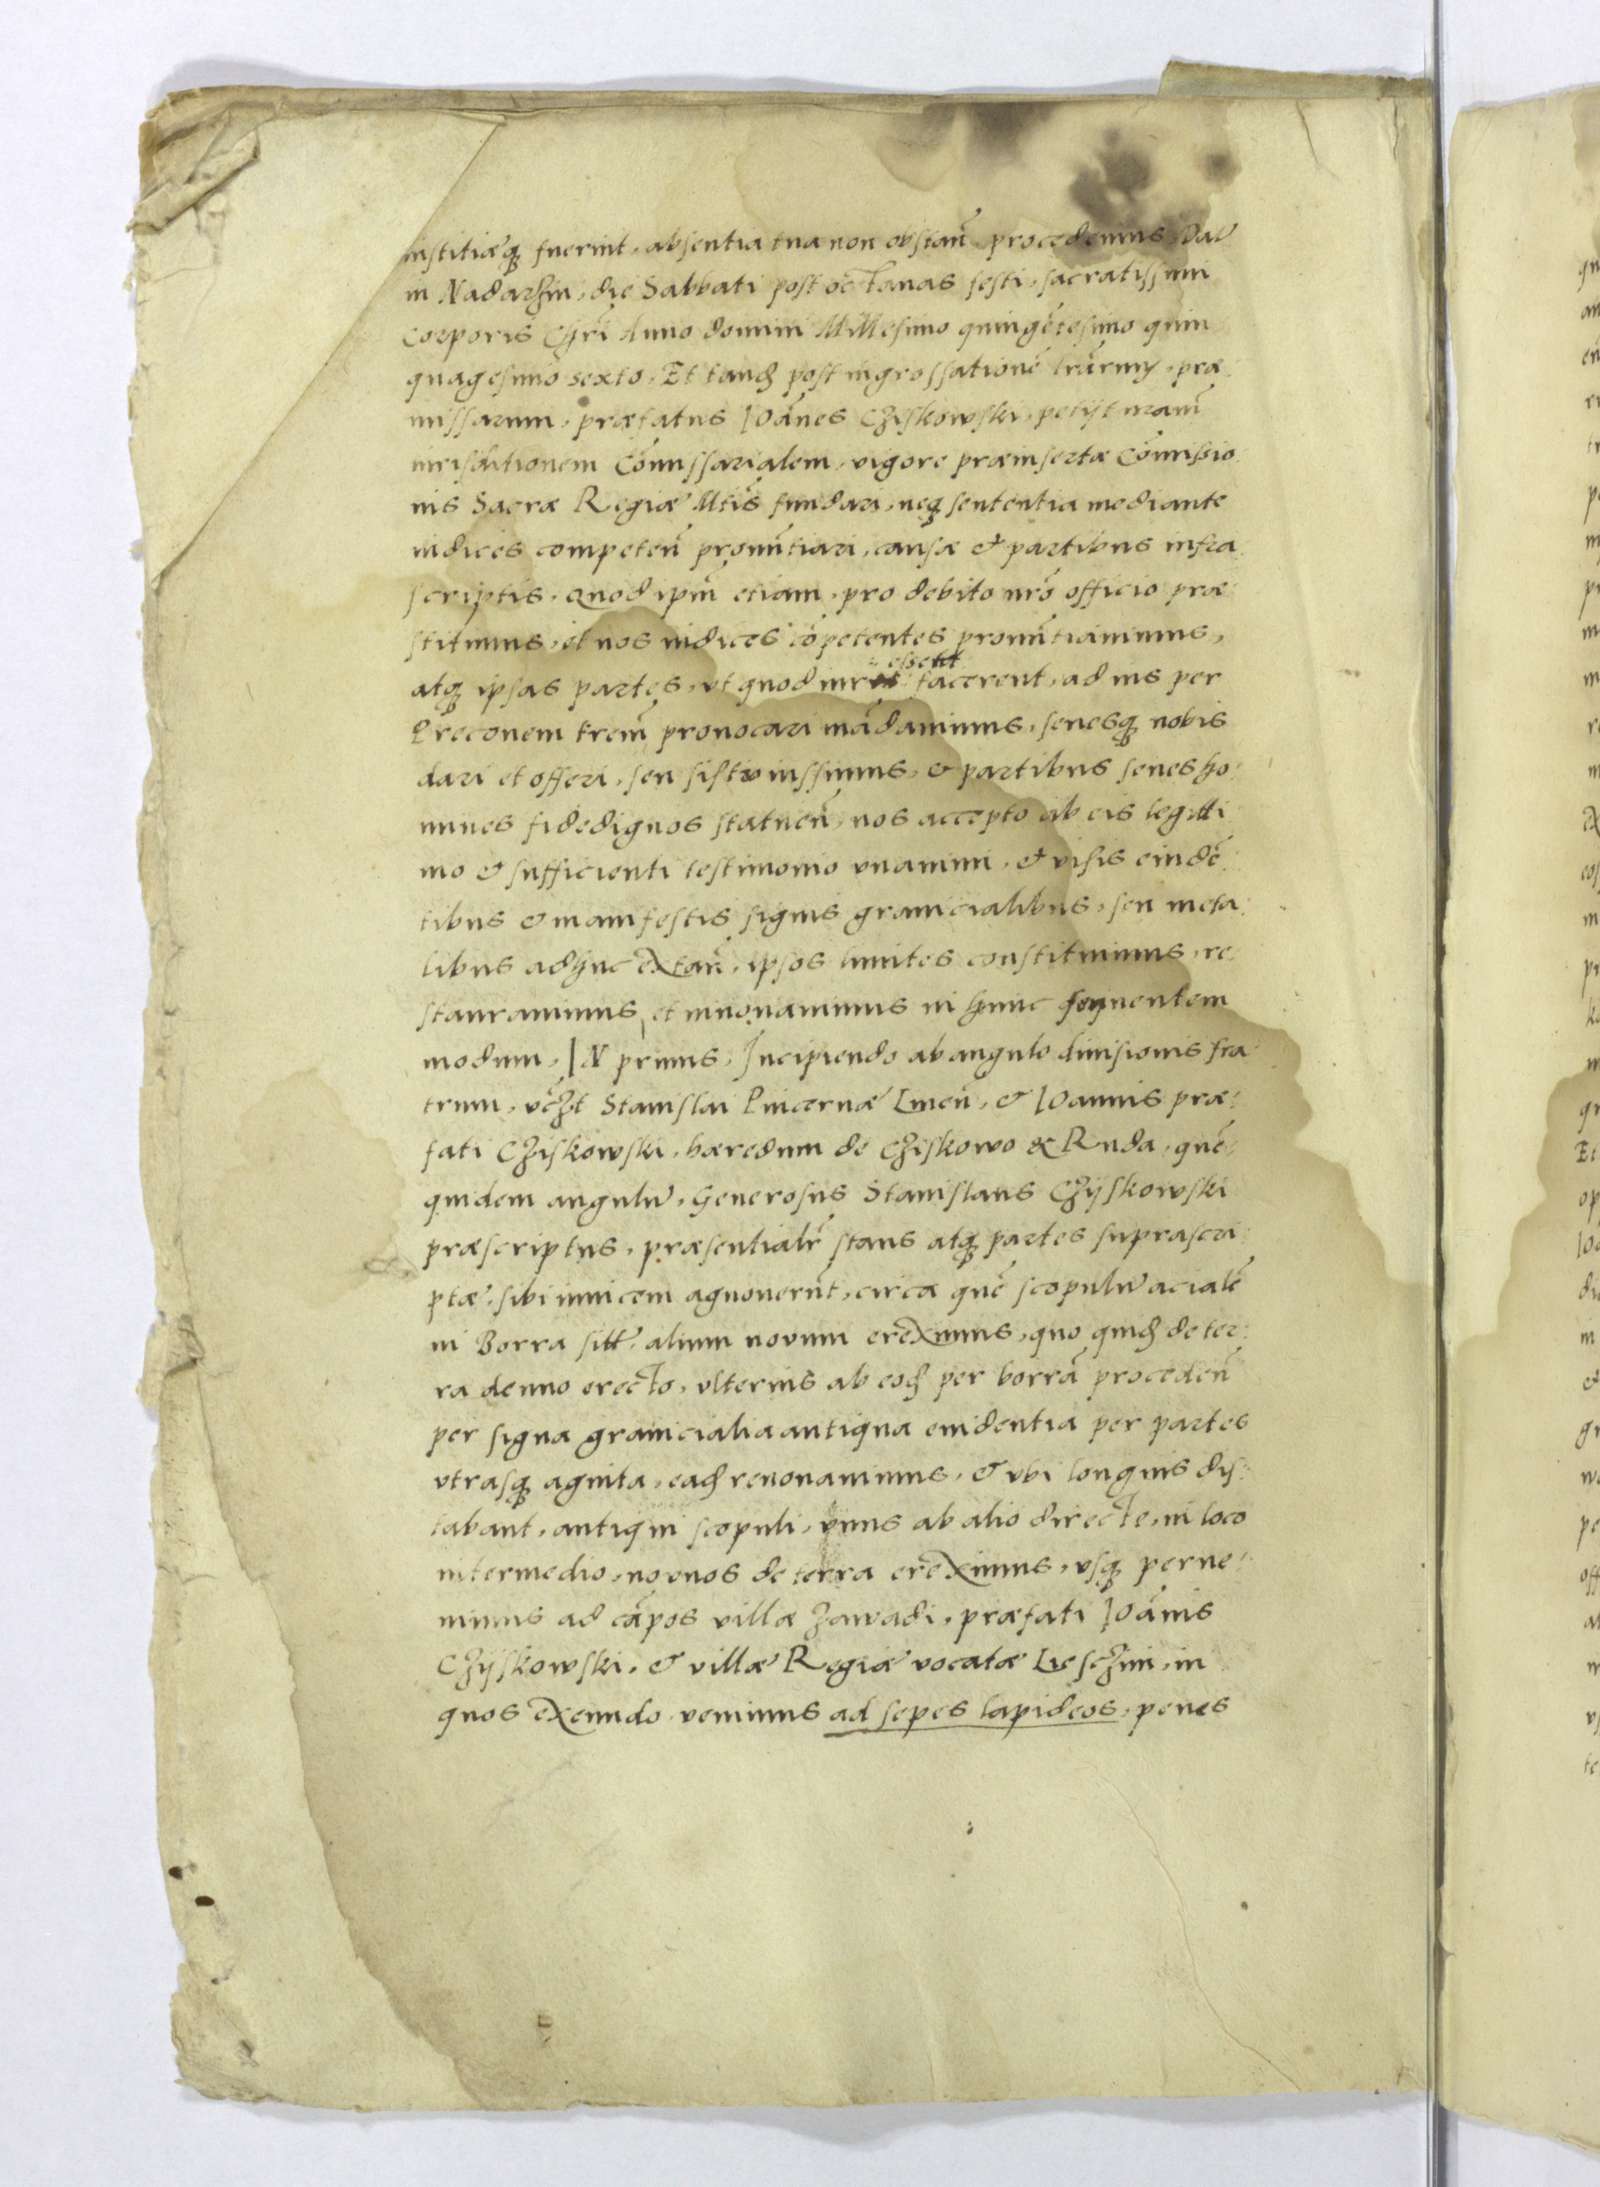 iustitiæq3 fuerint, absentia tua non obstañ procedemus Daᵗ
in Nadarzin, die Sabbati post octavas festi, sacratissimi
Corporis Chrī Anno domini Millesimo quingētesimo quin
quagesimo sexto, Et tandē post ingrossationē lrārum, præ
missarum, præfatus Ioānes Cziskowski, petijt nram̄
iurisditionem Cōmissarialem, vigore præinsertæ Cōmissio
nis Sacræ Regiæ Mtīs fundari, neq3 sententia mediante
iudices competeñ pronūtiari, causæ & partibus infra
scriptis, quod ipm̄ etiam, pro debito nrō officio præ
stitimus, et nos iudices cōpetentes pronūtiauimus,
atq3 ipsas partes, vt quod iuris essent facerent, ad ius per
Preconem trem̄ prouocari mādauimus, senesq3 nobis
dari et offeri, seu sisti iussimus, & partibus senes ho
mines fidedignos statueñ, nos accepto ab eis legitti
mo & sufficienti testimonio vnanimi, & visis euidē
tibus & manifestis signis granicialibus, seu meta
libus adhuc extañ, ipsos limites constituimus, re
stauravimus, et innouauimus in hunc sequentem
modum, IN primis, Incipiendo ab angulo diuisionis fra
trum, vczt Stanislai Pincernæ Lmeñ, & Ioannis præ
fati Cziskowski, hæredum de Cziskowo & Ruda, quē
quidem angulū, Generosus Stanislaus Czijskowski
præscriptus, præsentialr̄ stans atq3 partes suprascri
ptæ, sibi inuicem agnouerūt, circa quē scopulū acialē
in Borra sitū, alium novum ereximus, quo quidē de ter
ra denuo erecto, vlterius ab eodē per borrā procedeñ
per signa granicialia antiqua euidentia per partes
vtrasq3 agnita, eadē renouauimus, & vbi longius dis
tabant, antiqui scopuli, vnus ab alio directe, in loco
intermedio, nouos de terra ereximus, vsq3 perue
nimus ad cāpos villæ Zawadi, præfati Ioānis
Czijskowski, & villæ Regiæ vocatæ Leschzini, in
quos exeundo venimus ad sepes lapideos, penes